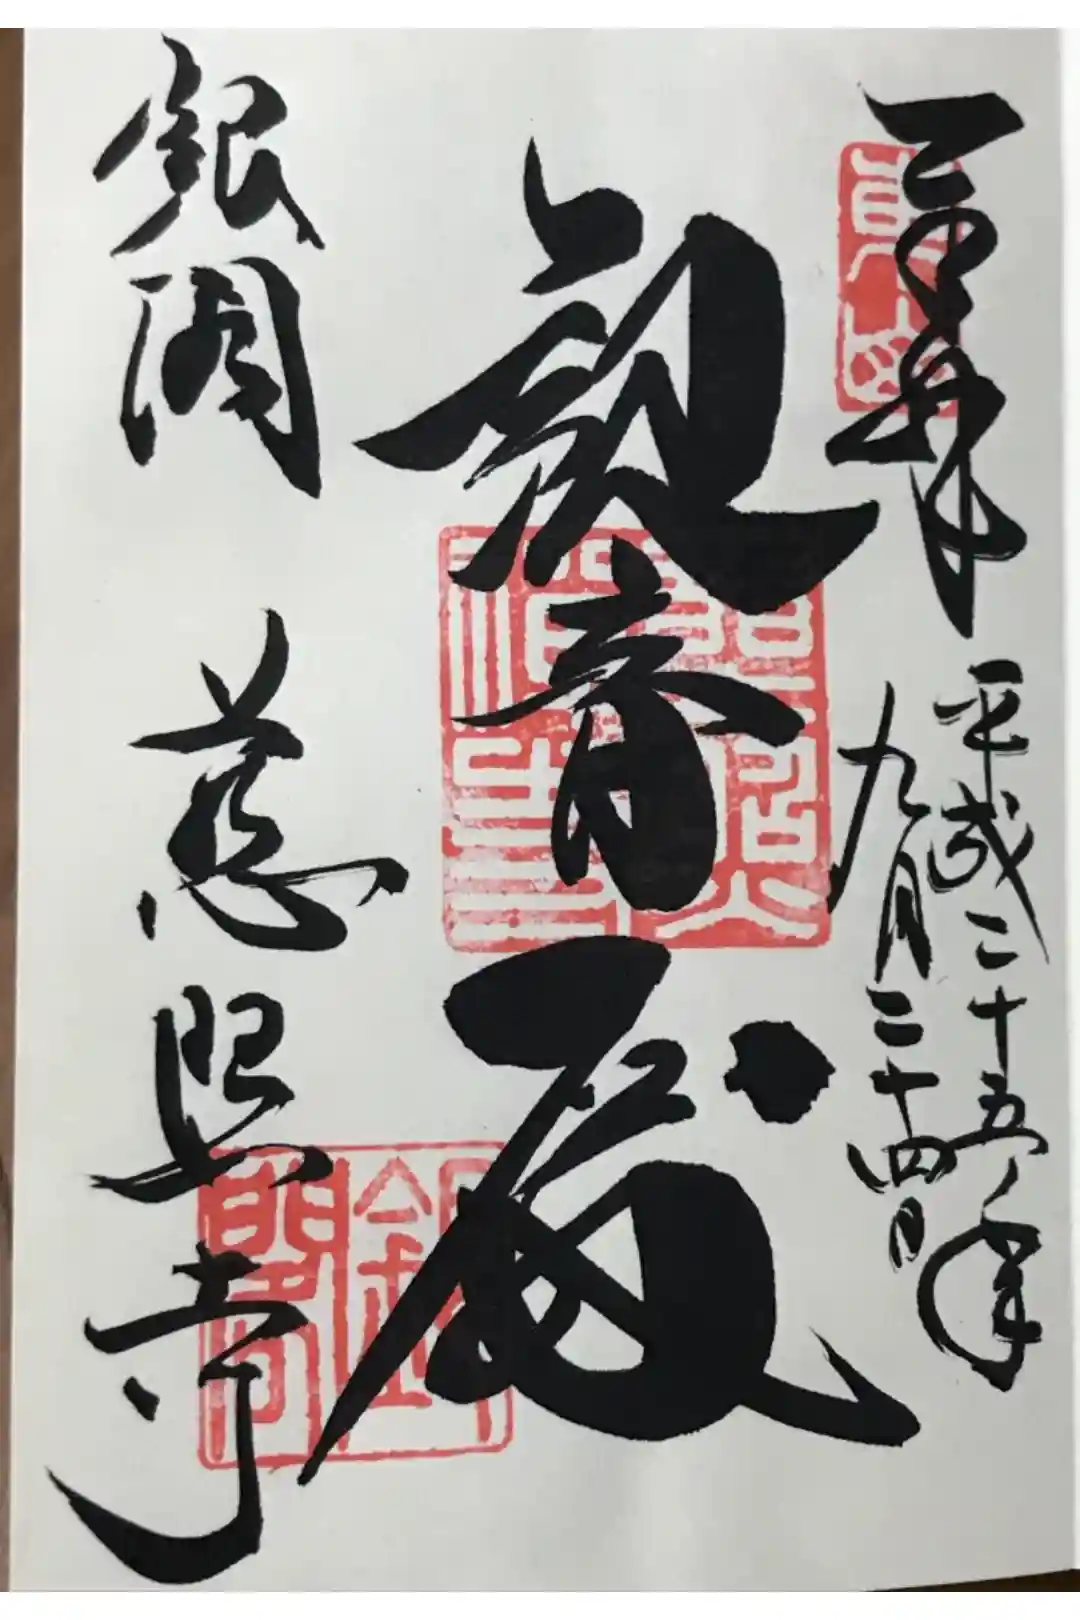 奉拝
東山
平成二十五年
九月二十四日
観音殿
銀閣　慈照寺
銀閣